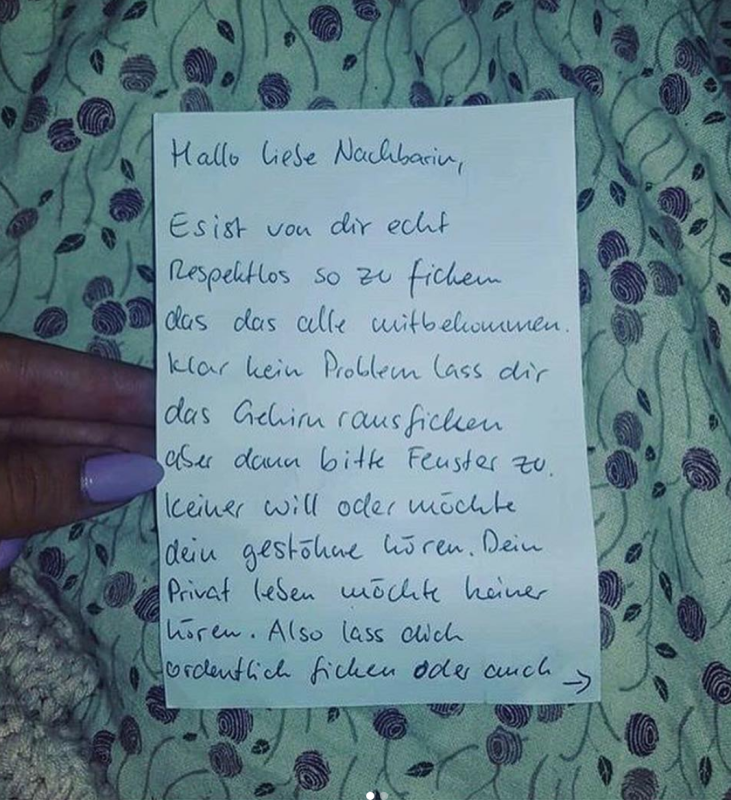 Hallo liebe Nachbarin,
Es ist von dir echt
Respektlos so zu ficken
das das alle mitbekommen.
Klar kein Problem lass dir
das Gehirn rausficken
aber dann bitte Fenster zu.
Keiner will oder möchte
dein gestöhne hören. Dein
Privat leben möchte keiner
hören. Also lass dich
ordentlich ficken oder auch →